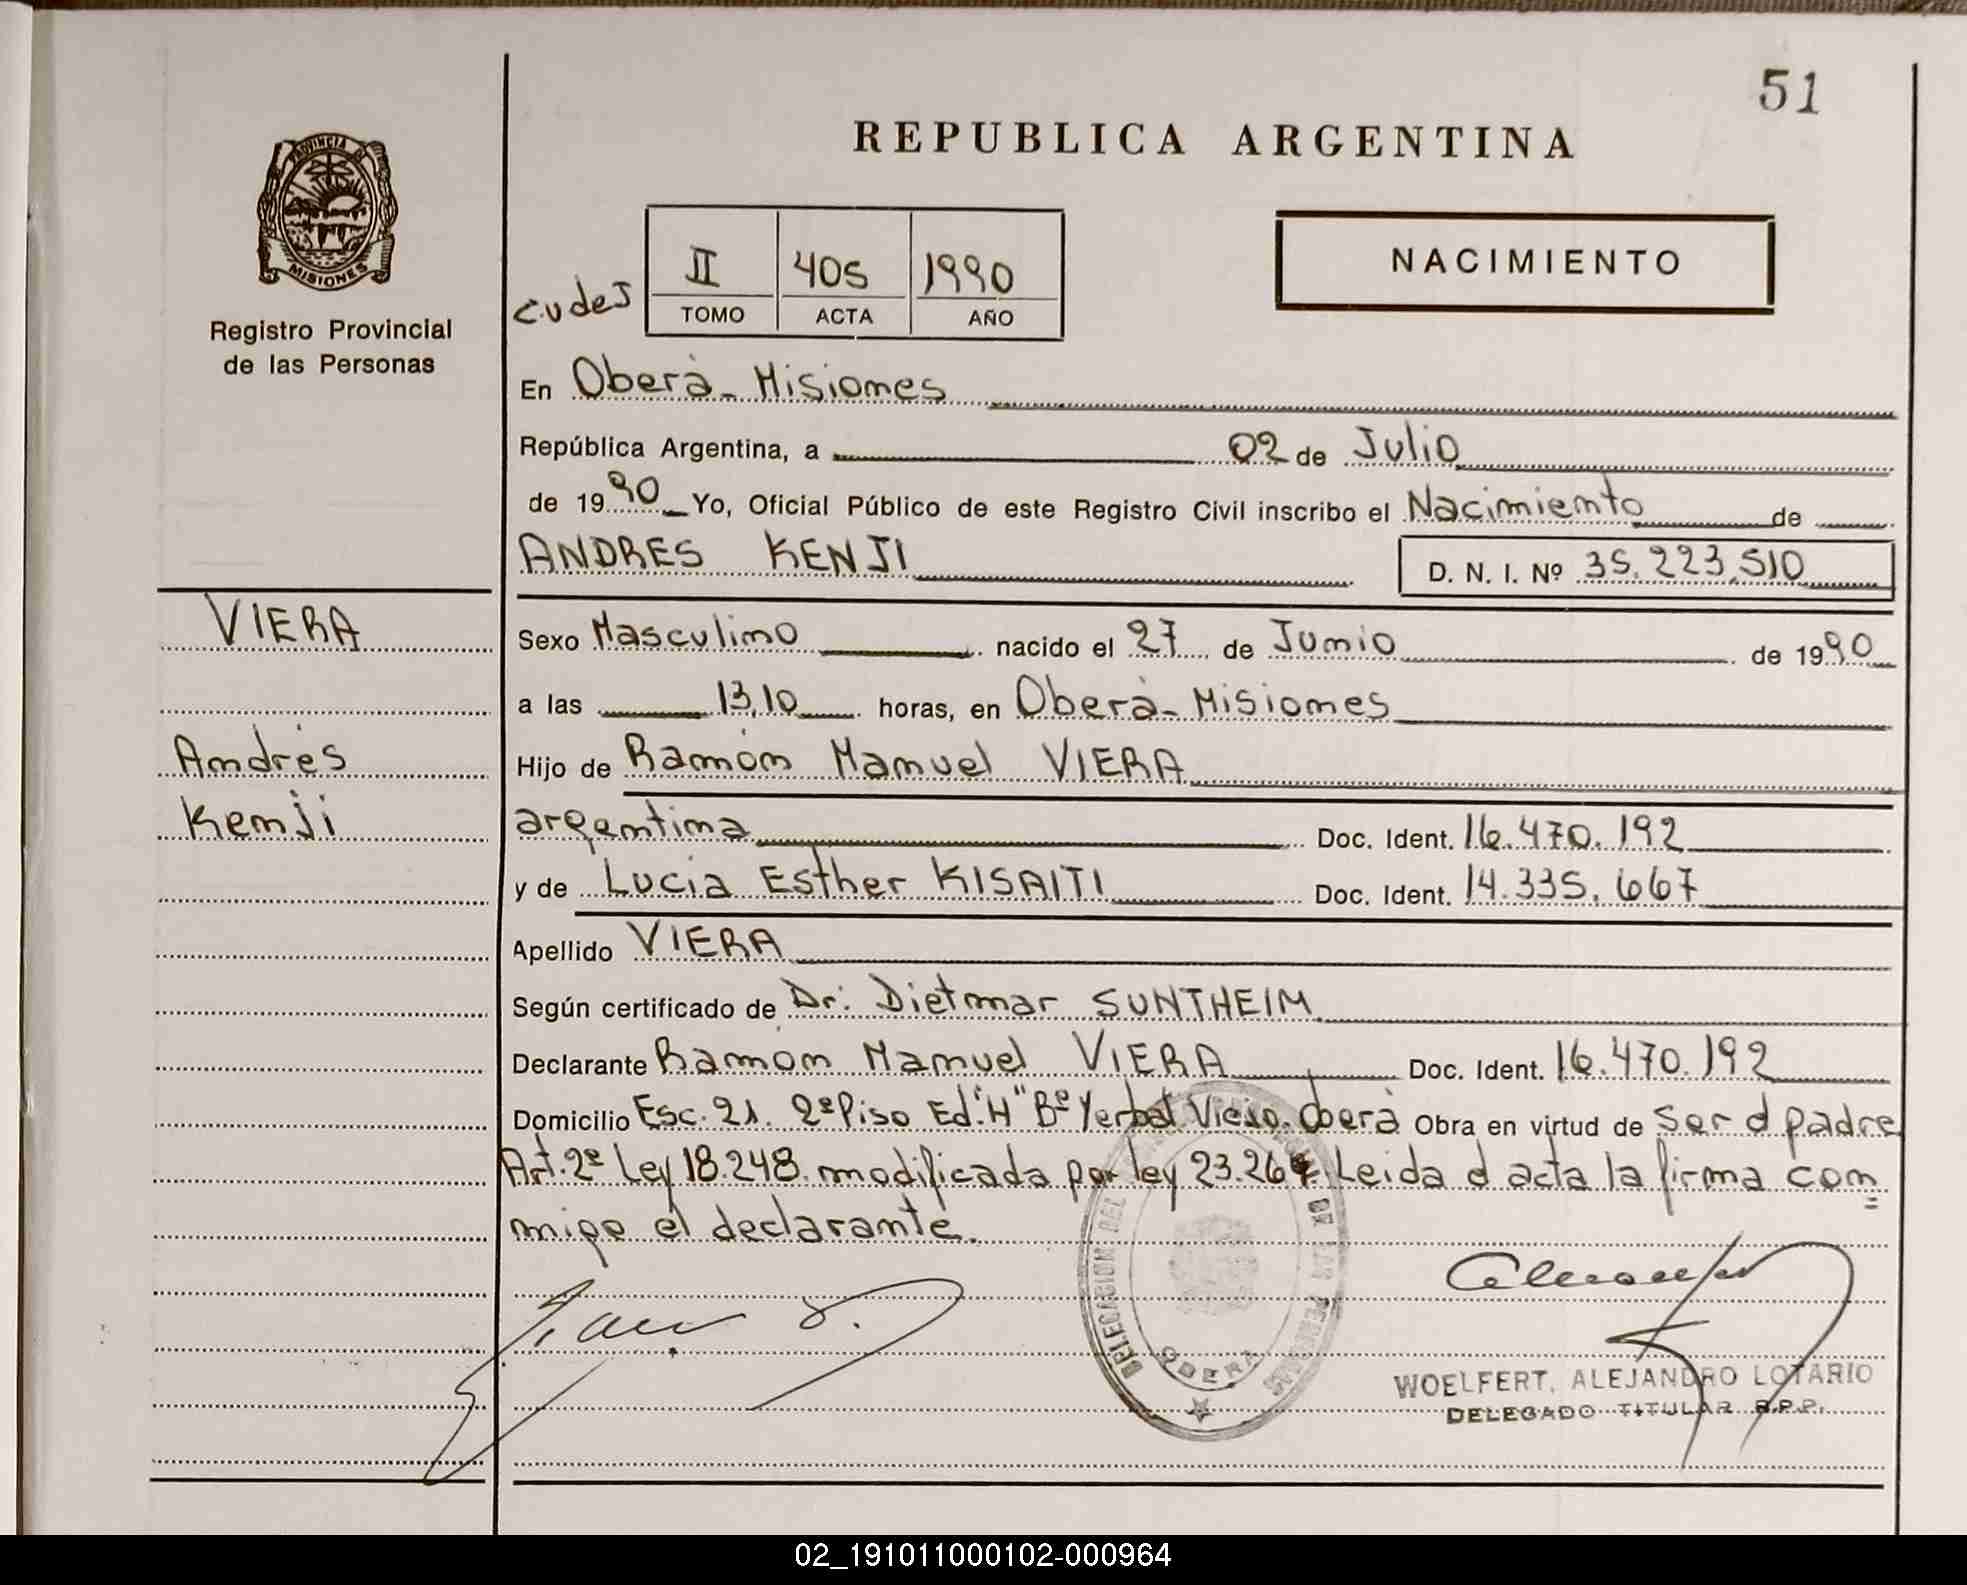 51
REPUBLICA ARGENTINA
PROVINCIA DE
MISIONES
Registro Provincial
de las Personas
II 405 1990
TOMO ACTA AÑO
NACIMIENTO
En Oberà - Misiones
República Argentina, a 02 de Julio
de 1990 Yo, Oficial Público de este Registro Civil inscribo el Nacimiento de
ANDRES KENJI D. N. I. Nº 35.223.510
VIERA
Sexo Masculino nacido el 27 de Junio de 1990
a las 13,10 horas, en Oberà - Misiones
Andrés
Hijo de Ramón Manuel VIERA
Kenji
argentina Doc. Ident. 16.470.192
y de Lucia Esther KISAITI Doc. Ident. 14.335.667
Apellido VIERA
Según certificado de Dr: Dietmar SUNTHEIM
Declarante Ramón Manuel VIERA Doc. Ident. 16.470.192
Domicilio Esc. 21. 2º Piso Ed. "H" Bº Yerbal Viejo. Oberà Obra en virtud de ser el padre
Art. 2º Ley 18.248. modificada por ley 23.264 Leida el acta la firma con
migo el declarante.
DELEGACION DEL DE LAS PERSONAS
OBERA
WOELFERT, ALEJANDRO LOTARIO
DELEGADO TITULAR R.P.P.
02_191011000102-000964